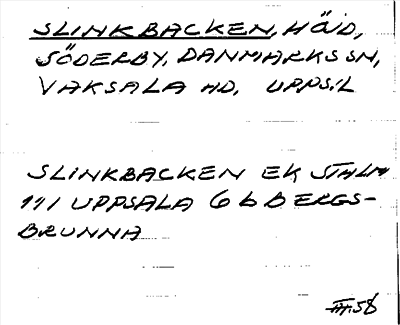 SLINKBACKEN, HÖJD,
SÖDERBY, DANMARKS SN,
VAKSALA HD, UPPS.L
SLINKBACKEN EK STHLM
111 UPPSALA 6 b BERGS-
BRUNNA
III.58